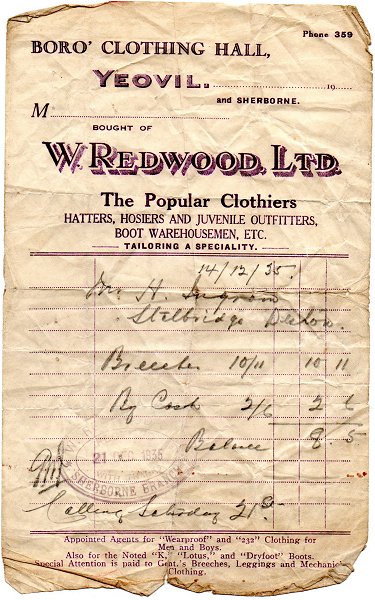 Phone 359
BORO' CLOTHING HALL,
YEOVIL. 19
AND SHERBORNE.
M
BOUGHT OF
W. REDWOOD, LTD.
The Popular Clothiers
HATTERS, HOSIERS AND JUVENILE OUTFITTERS,
BOOT WAREHOUSEMEN, ETC.
TAILORING A SPECIALITY.
14/12/35.
Mr H. Ingram
Stalbridge
Breeches 10/11 10 11
By Cash 2/6 2 6
Balance 8. 5
21 DEC 1935
SHERBORNE BRANCH
Calling Saturday 21st
Appointed Agents for "Wearproof" and "232" Clothing for
Men and Boys.
Also for the Noted "K," "Lotus," and "Dryfoot" Boots.
Special Attention is paid to Gent.'s Breeches, Leggings and Mechanic
Clothing.